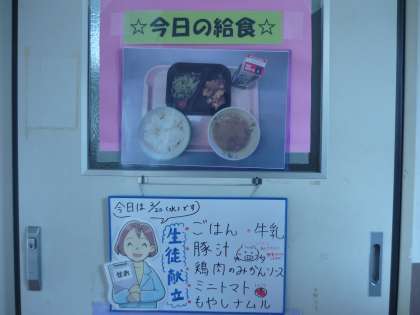 ☆今日の給食☆
今日は3/20(水)です
生徒献立
ごはん・牛乳
豚汁
鶏肉のみかんソース
ミニトマト
もやしナムル